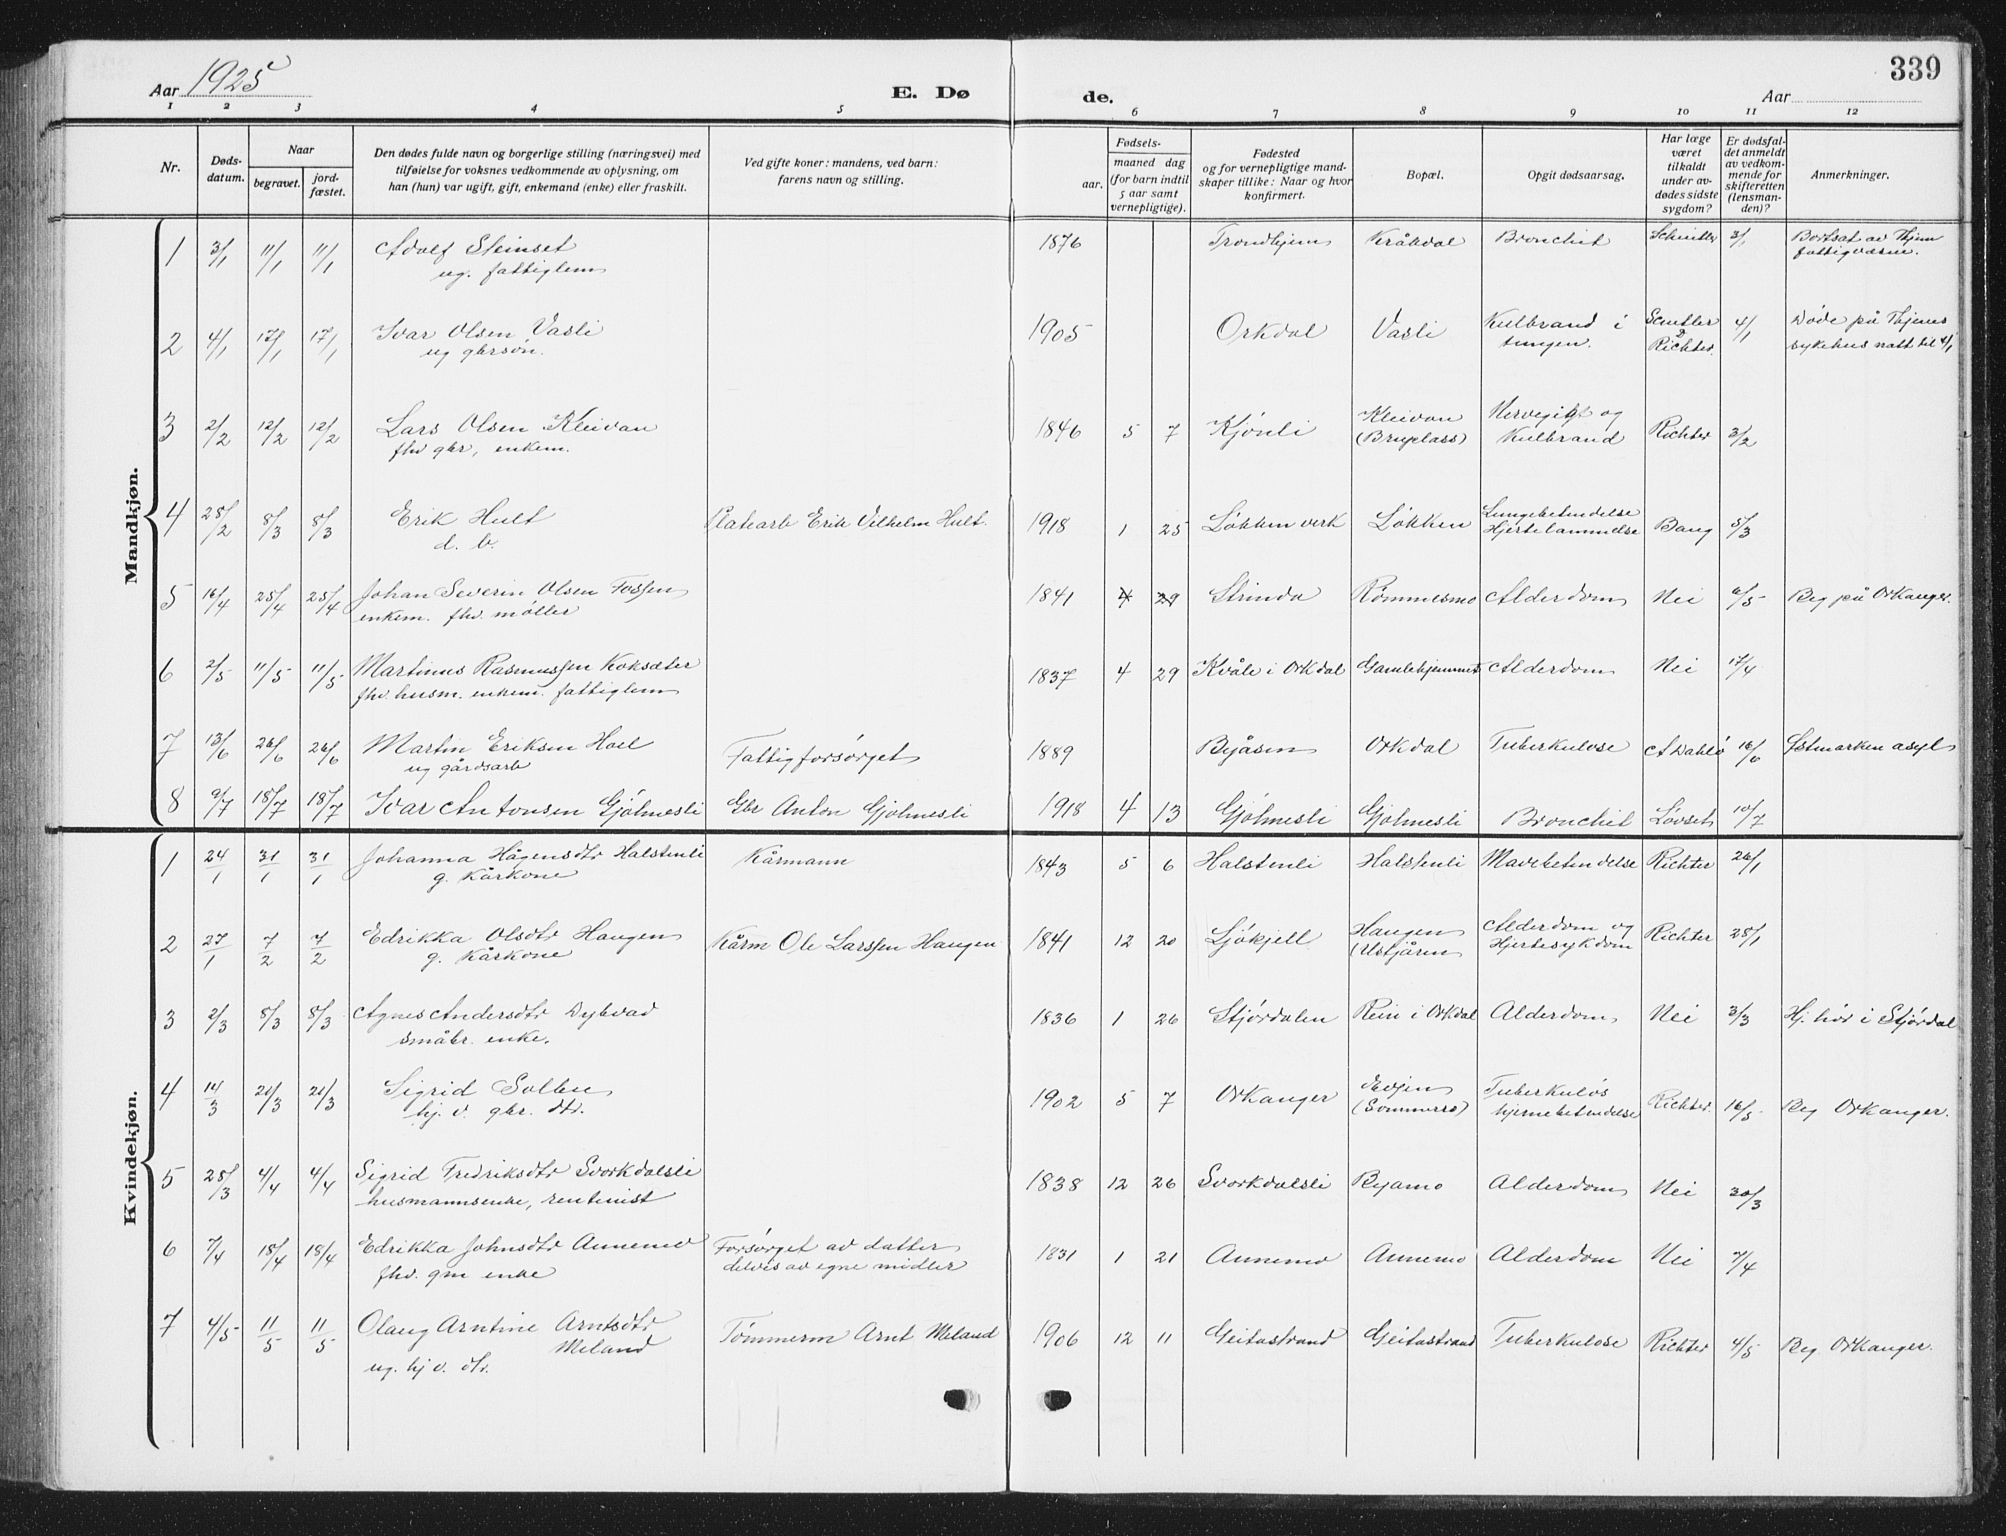 Aar 1925
E. Dø
de.
Aar
339
1 2 3 4 5 6 7 8 9 10 11 12
Nr.
Døds-
datum.
Naar
begravet.
jord-
fæstet.
Den dødes fulde navn og borgerlige stilling (næringsvei) med
tilføielse for voksnes vedkommende av oplysning, om
han (hun) var ugift, gift, enkemand (enke) eller fraskilt.
Ved gifte koner: mandens, ved barn:
farens navn og stilling.
Fødsels-
aar.
maaned dag
(for barn indtil
5 aar samt
vernepligtige).
Fødested
og for vernepligtige mand-
skaper tillike: Naar og hvor
konfirmert.
Bopæl.
Opgit dødsaarsag.
Har læge
været
tilkaldt
under av-
dødes sidste
sygdom?
Er dødsfal-
det anmeldt
av vedkom-
mende for
skifteretten
(lensman-
den)?
Anmerkninger.
Mandkjøn.
1 3/1 11/1 11/1 Adolf Steinset 1876 Trondhjem Kråkdal Bronchit Schnitler 3/1 Bortsat av Thjem
ug. fattiglem fattigvæsne.
2 4/1 17/1 17/1 Ivar Olsen Vasli 1905 Orkdal Vasli Kulbrand i 4/1 Døde på Thjems
ug gbrsøn. lungen. Richter. sykehus natt til 4/1
3 2/2 12/2 12/2 Lars Olsen Kleivan 1846 5 7 Kjönli Kleivan og Richter 3/2
fhv gbr, enkem. Kulbrand
4 25/2 8/3 8/3 Erik Hult Platearb Erik Vilhelm Hult. 1918 1 25 Løkken verk Løkken Lungebetendelse Bang 5/3
d. b. Hjertelammelse
5 16/4 25/4 25/4 Johan Severin Olsen Fossen 1841 4 29 Strinda Rømmesmo Alderdom Nei 6/5 Beg på Orkanger.
enkem. fhv. møller
6 2/5 11/5 11/5 Martinus Rasmussen Koksæter 1837 4 29 Kvåle i Orkdal Gamlehjemmet Alderdom Nei 17/4
fhv. husm. enkem. fattiglem
7 13/6 26/6 26/6 Martin Eriksen Hoel Fattigforsørget 1889 Byåsen Orkdal Tuberkulose A Dahlø 16/6 Østmarken asyl
ug gårdsarb
8 9/7 18/7 18/7 Ivar Antonsen Gjølmesli Gbr Anton Gjølmesli 1918 4 13 Gjølmesli Gjølmesli Bronchit Løvset 10/7
Kvindekjøn.
1 24/1 31/1 31/1 Johanna Hågensdtr Halstenli Kårmann 1843 5 6 Halstenli Halstenli Mavebetendelse Richter 26/1
g. Kårkone
2 27/1 7/2 7/2 Edrikka Olsdtr Haugen Kårm Ole Larssen Haugen 1841 12 20 Sjøkjell Haugen Alderdom og Richter 28/1
g. Kårkone Hjertesykdom
3 2/3 8/3 8/3 Agnes Andersdtr Dybvad 1836 1 26 Stjørdalen Rein i Orkdal Alderdom Nei 3/3 Hj. hør i Stjørdal
småbr. enke.
4 14/3 21/3 21/3 Sigrid Solbu 1902 5 7 Orkanger Evjen Tuberkuløs Richter. 16/3 Beg Orkanger.
hj. v. gbr. dtr. hjernebetendelse
5 28/3 4/4 4/4 Sigrid Fredriksdtr Svorkdalsli 1838 12 26 Svorkdalsli Byamo Alderdom Nei 30/3
husmannsenke, rentenist
6 7/4 18/4 18/4 Edrikka Johnsdtr Annemo Forsørget av datter 1831 1 21 Annemo Annemo Alderdom Nei 7/4
fhv. gm enke delvis av egne midler
7 4/5 11/5 11/5 Olaug Arntine Arntsdtr Tømmerm Arnt Meland 1906 12 11 Geitastrand Geitastrand Tuberkulose Richter 4/5 Beg Orkanger.
Meland
ug. hj v. dtr.